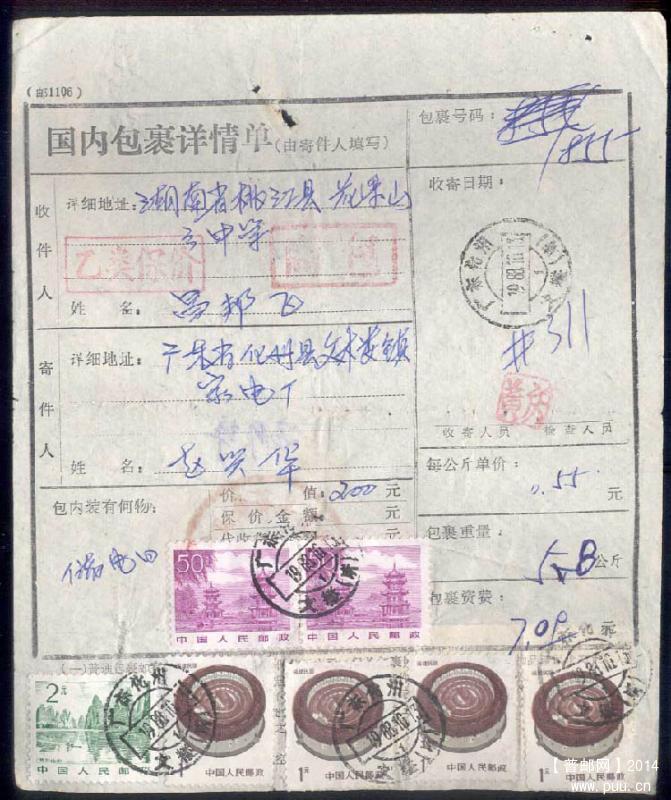 (邮1106)
国内包裹详情单(由寄件人填写)
包裹号码:
1855
收件人
详细地址:湖南省桃江县花果山
乙类保价
商包
姓 名:
收寄日期:
广东化州
1988.10.13
#311
寄件人
详细地址:广东省化州县文楼镇
家电厂
姓 名:赵兴华
收寄人员 检查人员
每公斤单价:
0.55 元
包内装有何物:
价 值:200元
保价金额: 元
包裹重量:
5.8 公斤
包裹资费:
7.09
50分
中国人民邮政
中国人民邮政
广东化州
(一)普通包裹
2元
中国人民邮政
中国人民邮政
福建民居
1元
中国人民邮政
1元
中国人民邮政
1元
中国人民邮政
【普邮网】2014
www.puu.cn